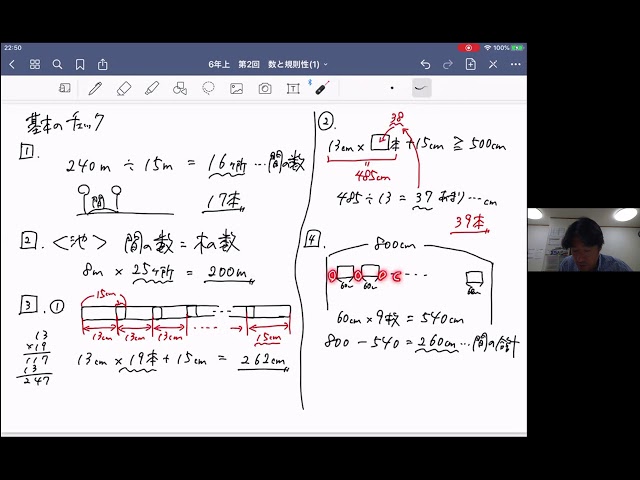 22:50
100%
6年上 第2回 数と規則性(1)
基本のチェック
1.
240m ÷ 15m = 16ヶ所…間の数
間
17本
2. <池> 間の数 = 木の数
8m × 25ヶ所 = 200m
3 ①
15cm
13cm 13cm 13cm 15cm
13cm × 19本 + 15cm = 262cm
13
×19
117
13
247
②.
38
13cm × □本 + 15cm ≧ 500cm
485cm
485 ÷ 13 = 37 あまり…cm
39本
4.
800cm
60cm 60cm 60cm
60cm × 9枚 = 540cm
800 − 540 = 260cm…間の合計